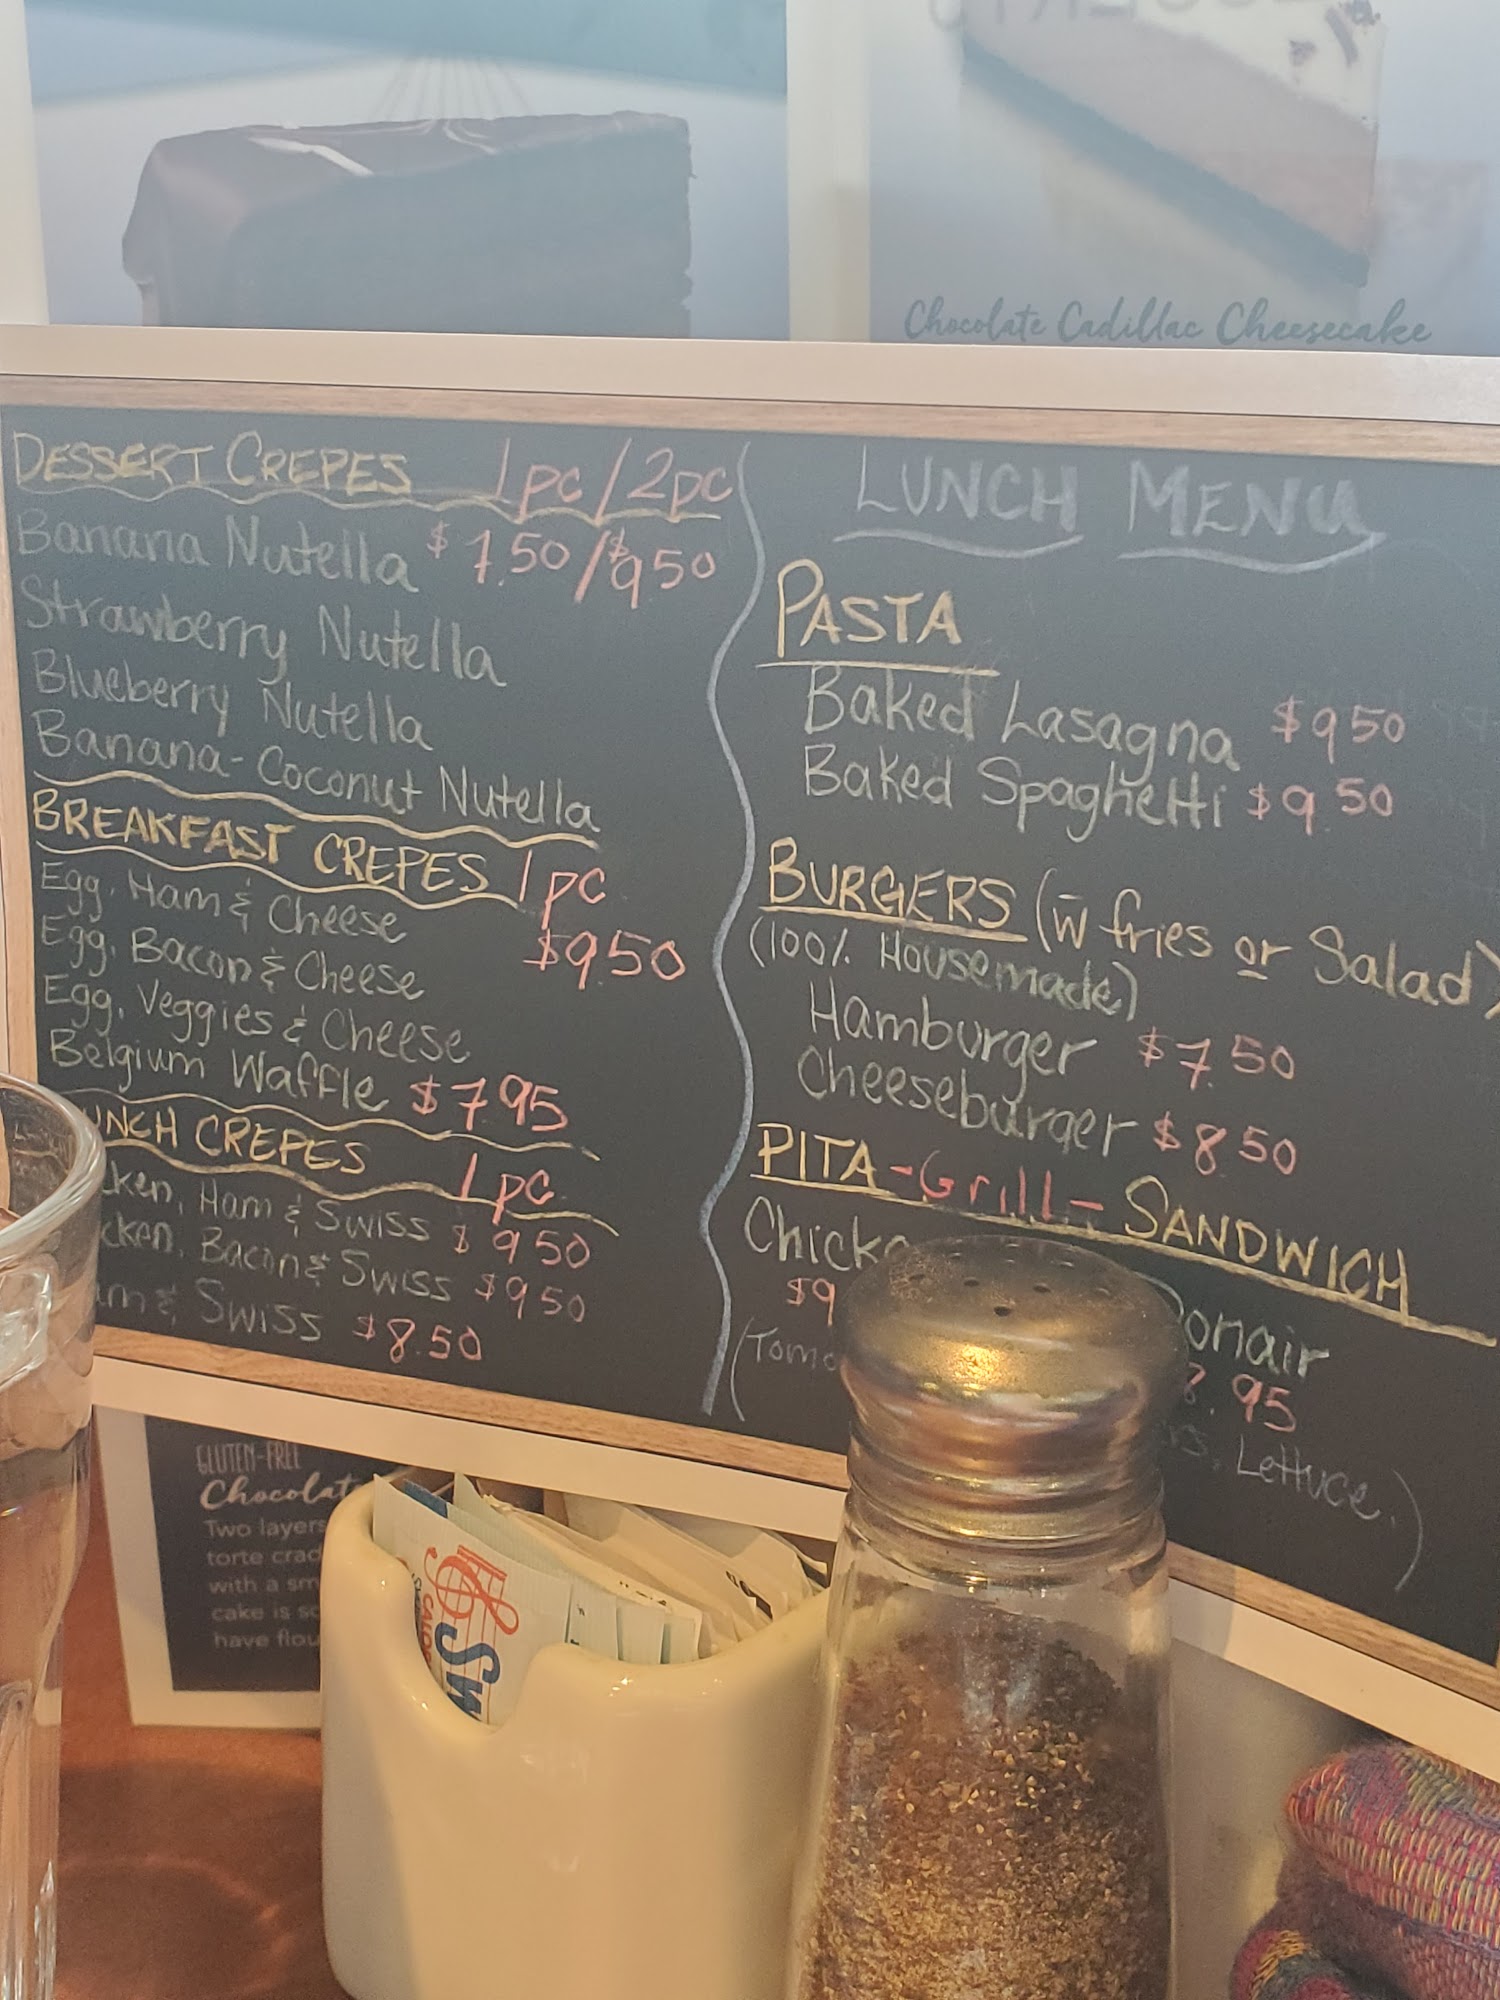 Chocolate Cadillac Cheesecake
DESSERT CREPES 1pc/2pc
Banana Nutella $7.50/$9.50
Strawberry Nutella
Blueberry Nutella
Banana-Coconut Nutella
BREAKFAST CREPES 1pc
Egg, Ham & Cheese
$9.50
Egg, Bacon & Cheese
Egg, Veggies & Cheese
Belgium Waffle $7.95
CREPES 1pc
Ham & Swiss $9.50
Bacon & Swiss $9.50
& Swiss $8.50
LUNCH MENU
PASTA
Baked Lasagna $9.50
Baked Spaghetti $9.50
BURGERS (w̄ fries or Salad)
(100% Housemade)
Hamburger $7.50
Cheeseburger $8.50
PITA-Grill-SANDWICH
95
Lettuce.)
GLUTEN-FREE
Chocolate
Two layers
torte
with a
cake is
have
Sw